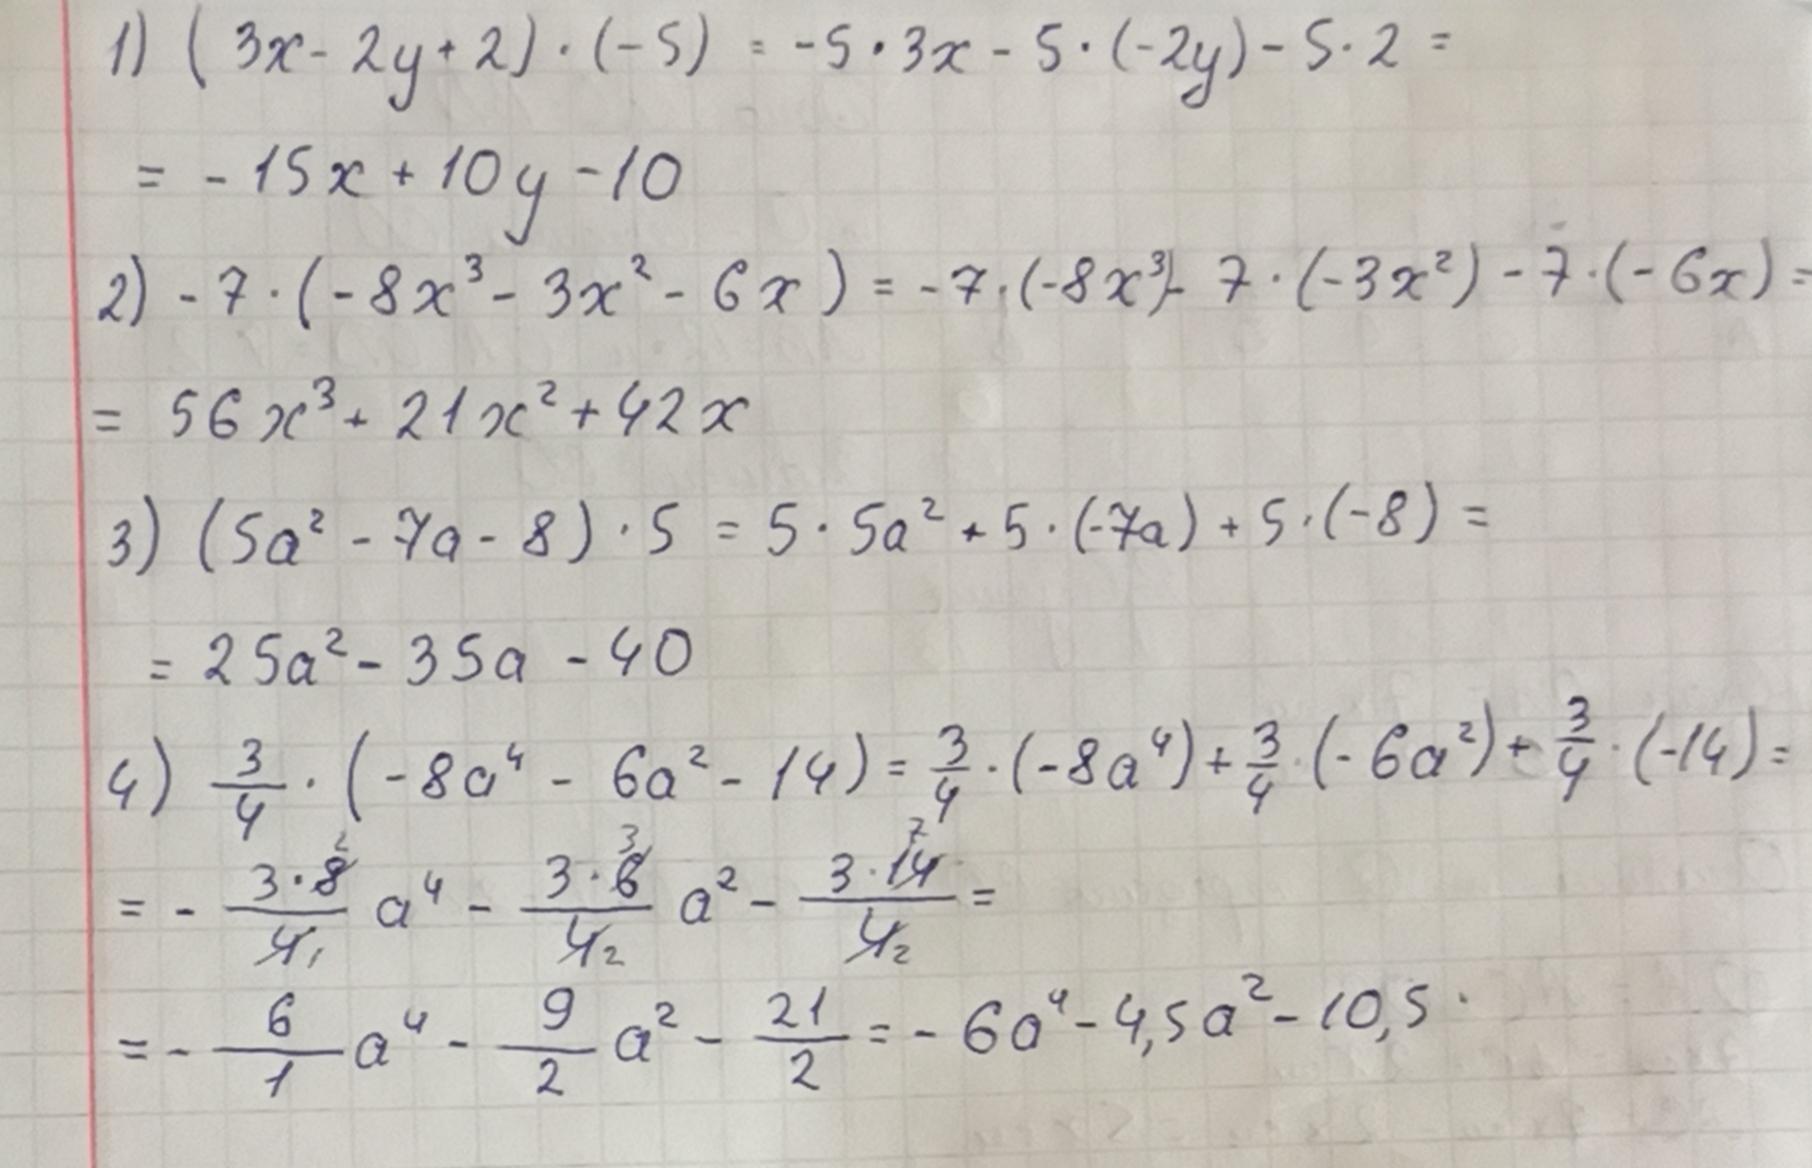 1) (3x - 2y + 2) · (-5) = -5 · 3x - 5 · (-2y) - 5 · 2 =
= - 15x + 10y - 10
2) - 7 · (- 8x³ - 3x² - 6x) = - 7 · (-8x³) - 7 · (-3x²) - 7 · (- 6x) =
= 56x³ + 21x² + 42x
3) (5a² - 7a - 8) · 5 = 5 · 5a² + 5 · (-7a) + 5 · (-8) =
= 25a² - 35a - 40
4) 3/4 · (- 8a⁴ - 6a² - 14) = 3/4 · (-8a⁴) + 3/4 · (- 6a²) + 3/4 · (-14) =
= - 3·8 2/4 1 a⁴ - 3·6 3/4 2 a² - 3·14 7/4 2 =
= - 6/1 a⁴ - 9/2 a² - 21/2 = - 6a⁴ - 4,5a² - 10,5.